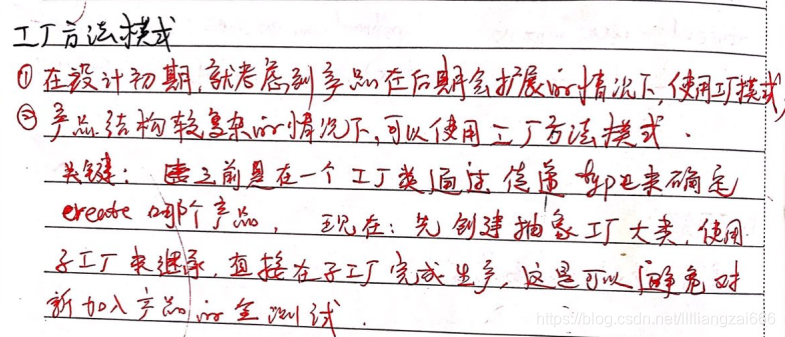 工厂方法模式
① 在设计初期,就考虑到产品在后期会扩展的情况下,使用工厂模式,
② 产品结构较复杂的情况下,可以使用工厂方法模式.
关键: 之前是在一个工厂类通过传递 type来确定
create 哪个产品, 现在:先创建抽象工厂大类,使用
子工厂来继承,直接在子工厂完成生产,这是可以避免对
新加入产品的全测试.
https://blog.csdn.net/lilliangzai666